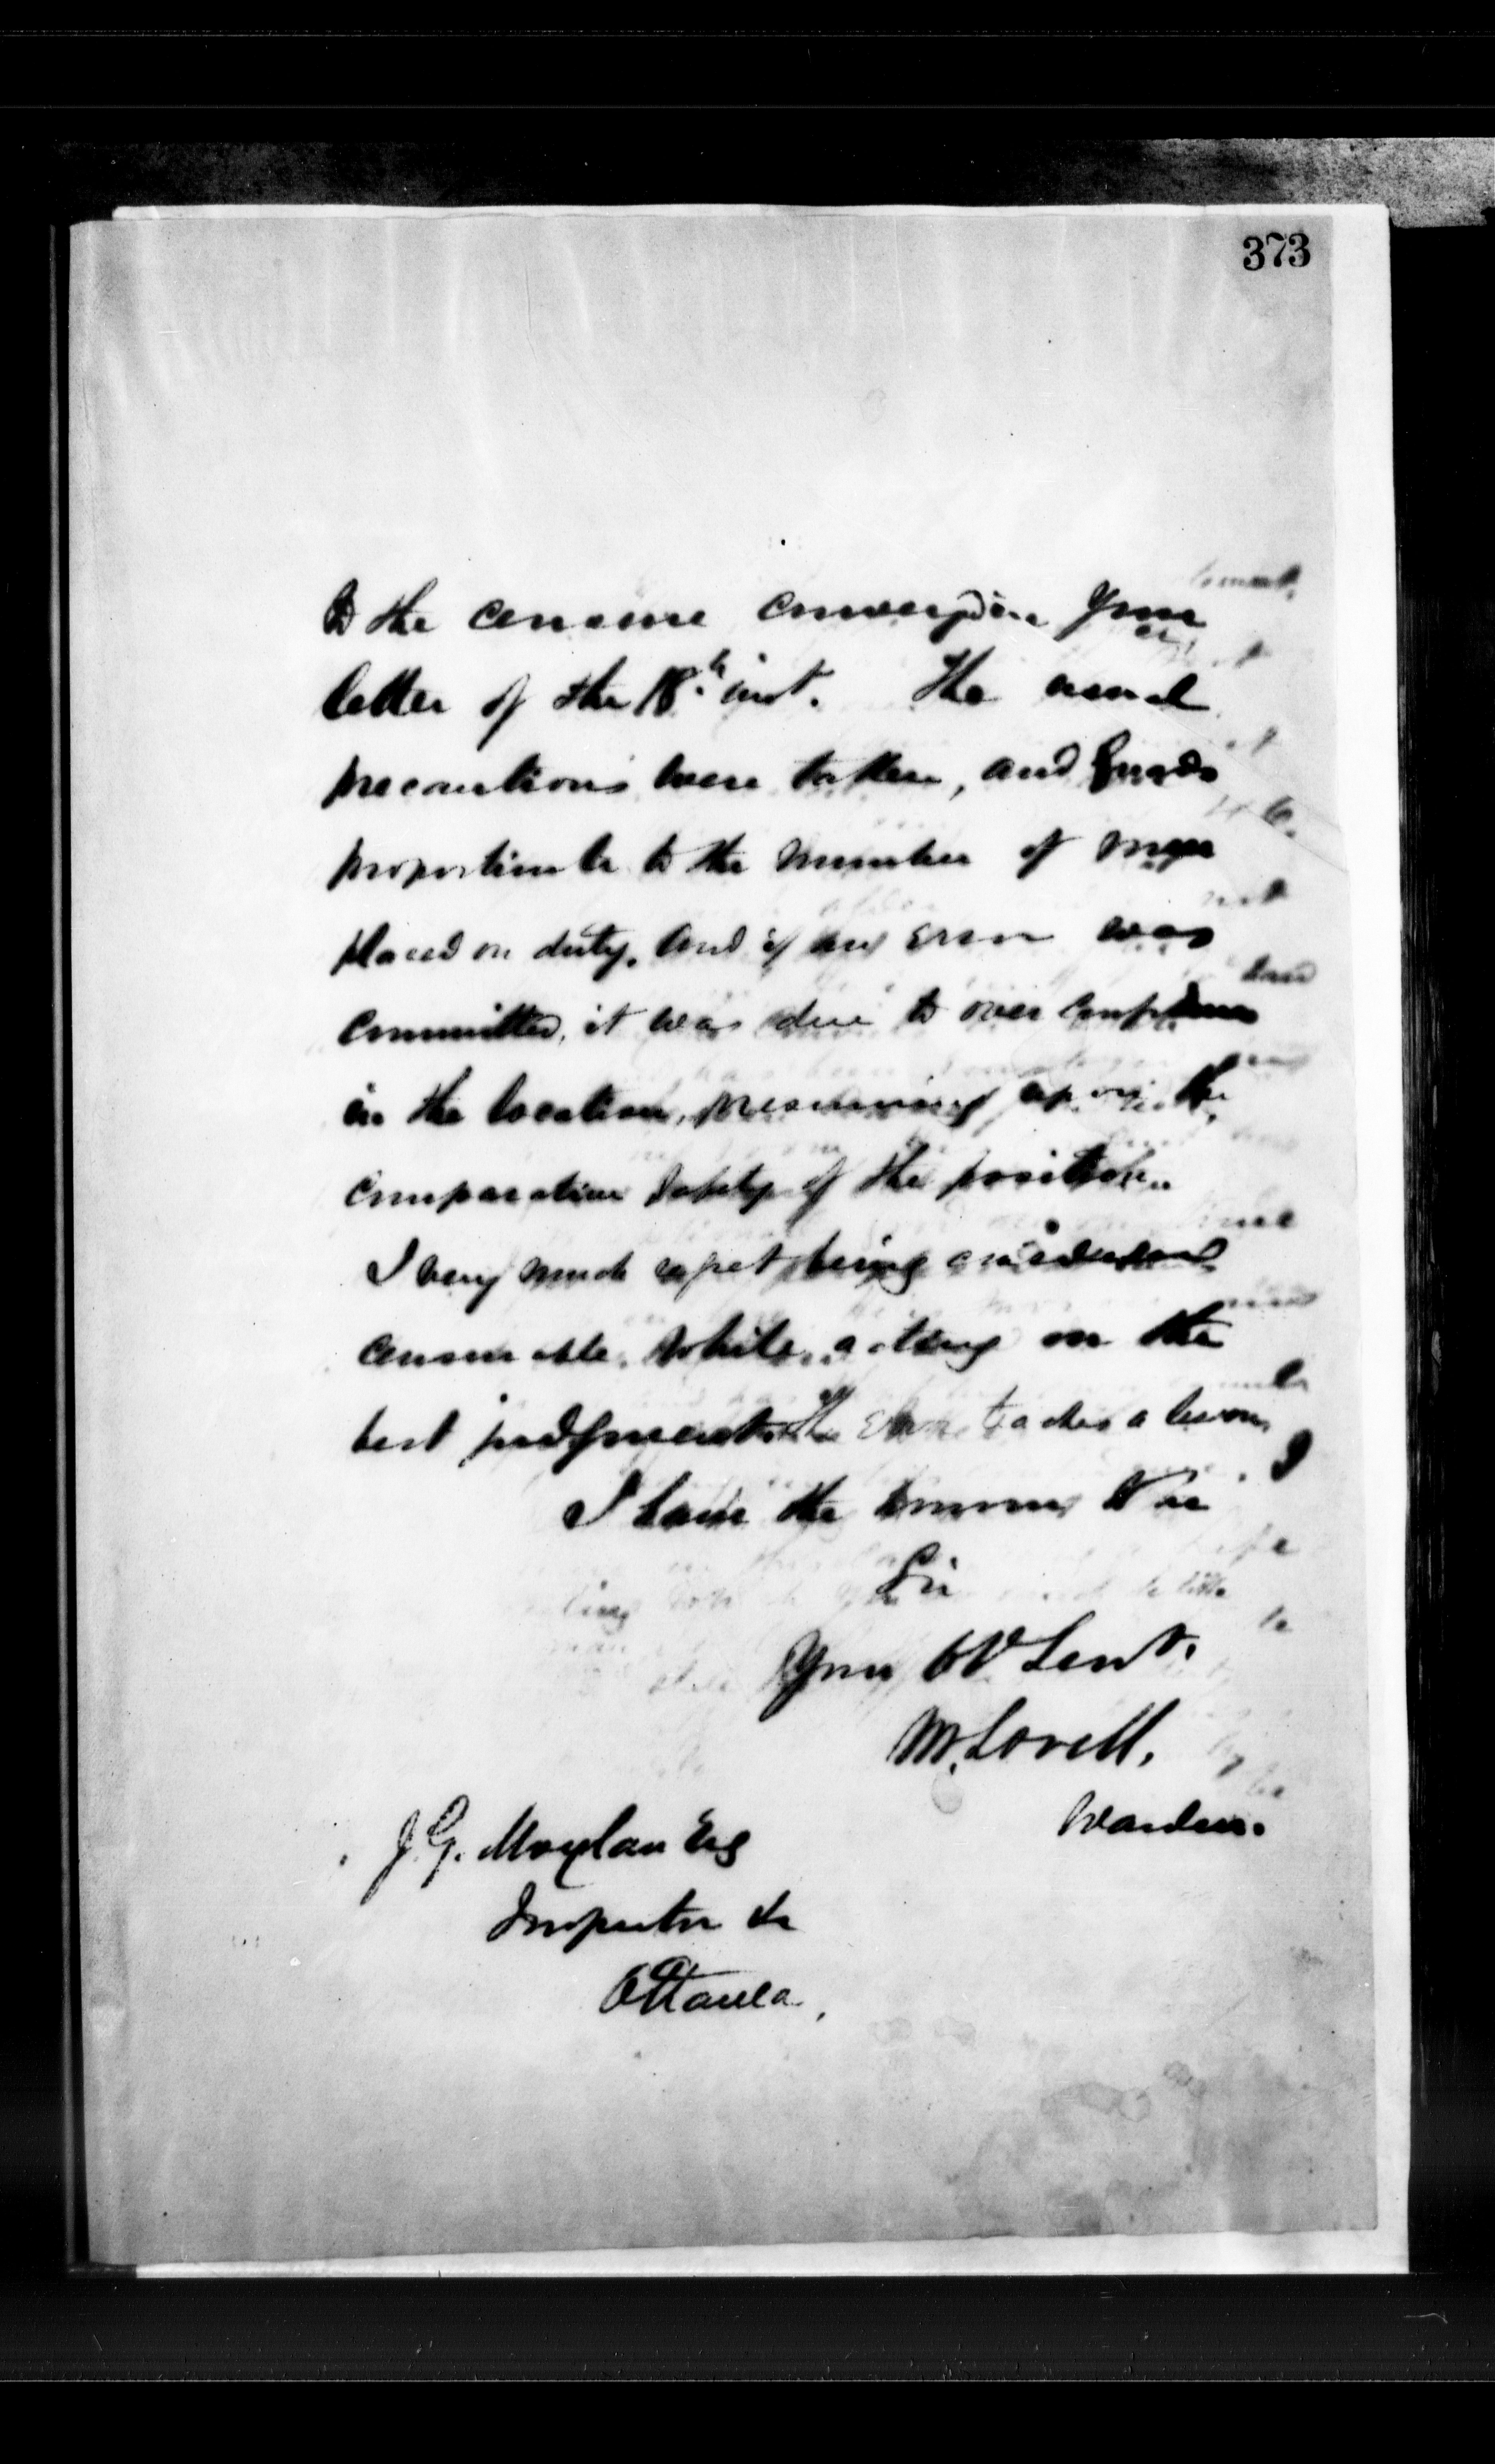 373
to the censure conveyed in your
letter of the 18th inst. The usual
precautions were taken, and Guards
proportionate to the number of men
placed on duty, and if any error was
committed, it was due to over confidence
in the location, presuming upon the
comparative safety of the position.
I very much regret being considered
censurable, while acting on the
best judgment. The teaches a lesson.
I have the honour to be
Sir
Your Obt Servt.
M. Lovell.
Warden.
J. G. Moylan Esq
Inspector &c
Ottawa.